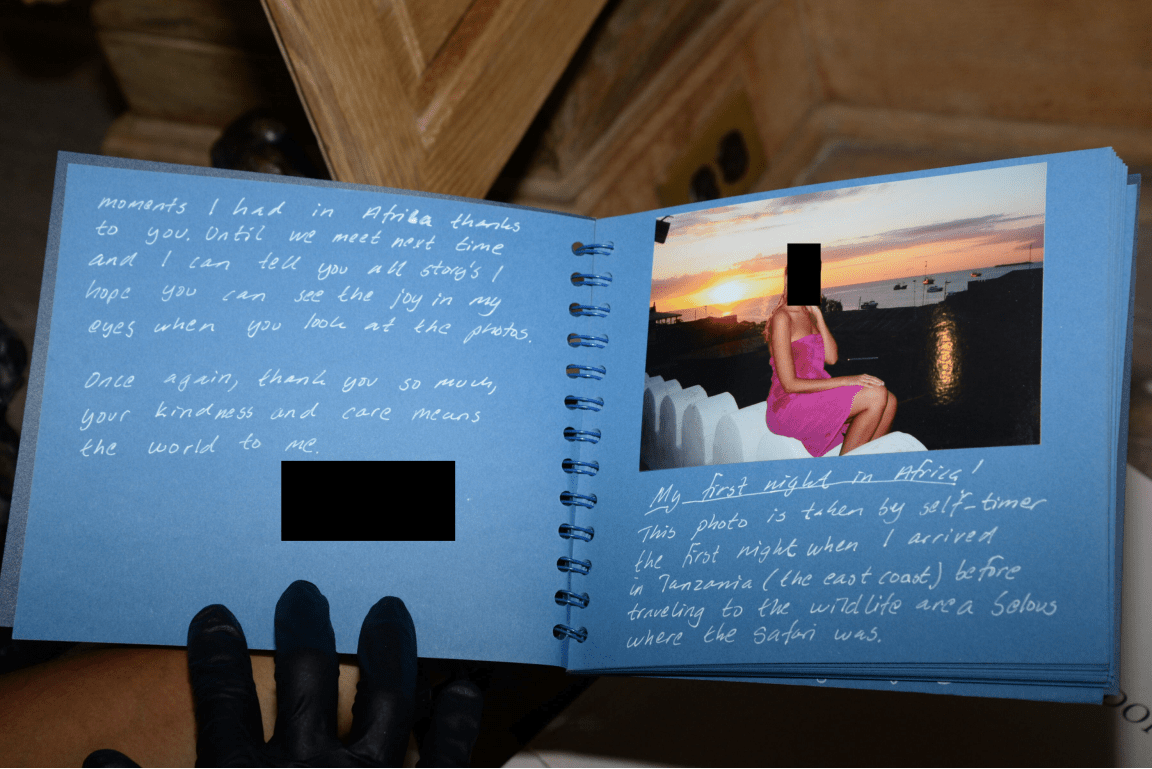 moments I had in Afrika thanks
to you. Until we meet next time
and I can tell you all story's I
hope you can see the joy in my
eyes when you look at the photos.
Once again, thank you so much,
your kindness and care means
the world to me.
My first night in Africa!
This photo is taken by self-timer
the first night when I arrived
in Tanzania (the east coast) before
traveling to the wildlife area Selous
where the Safari was.